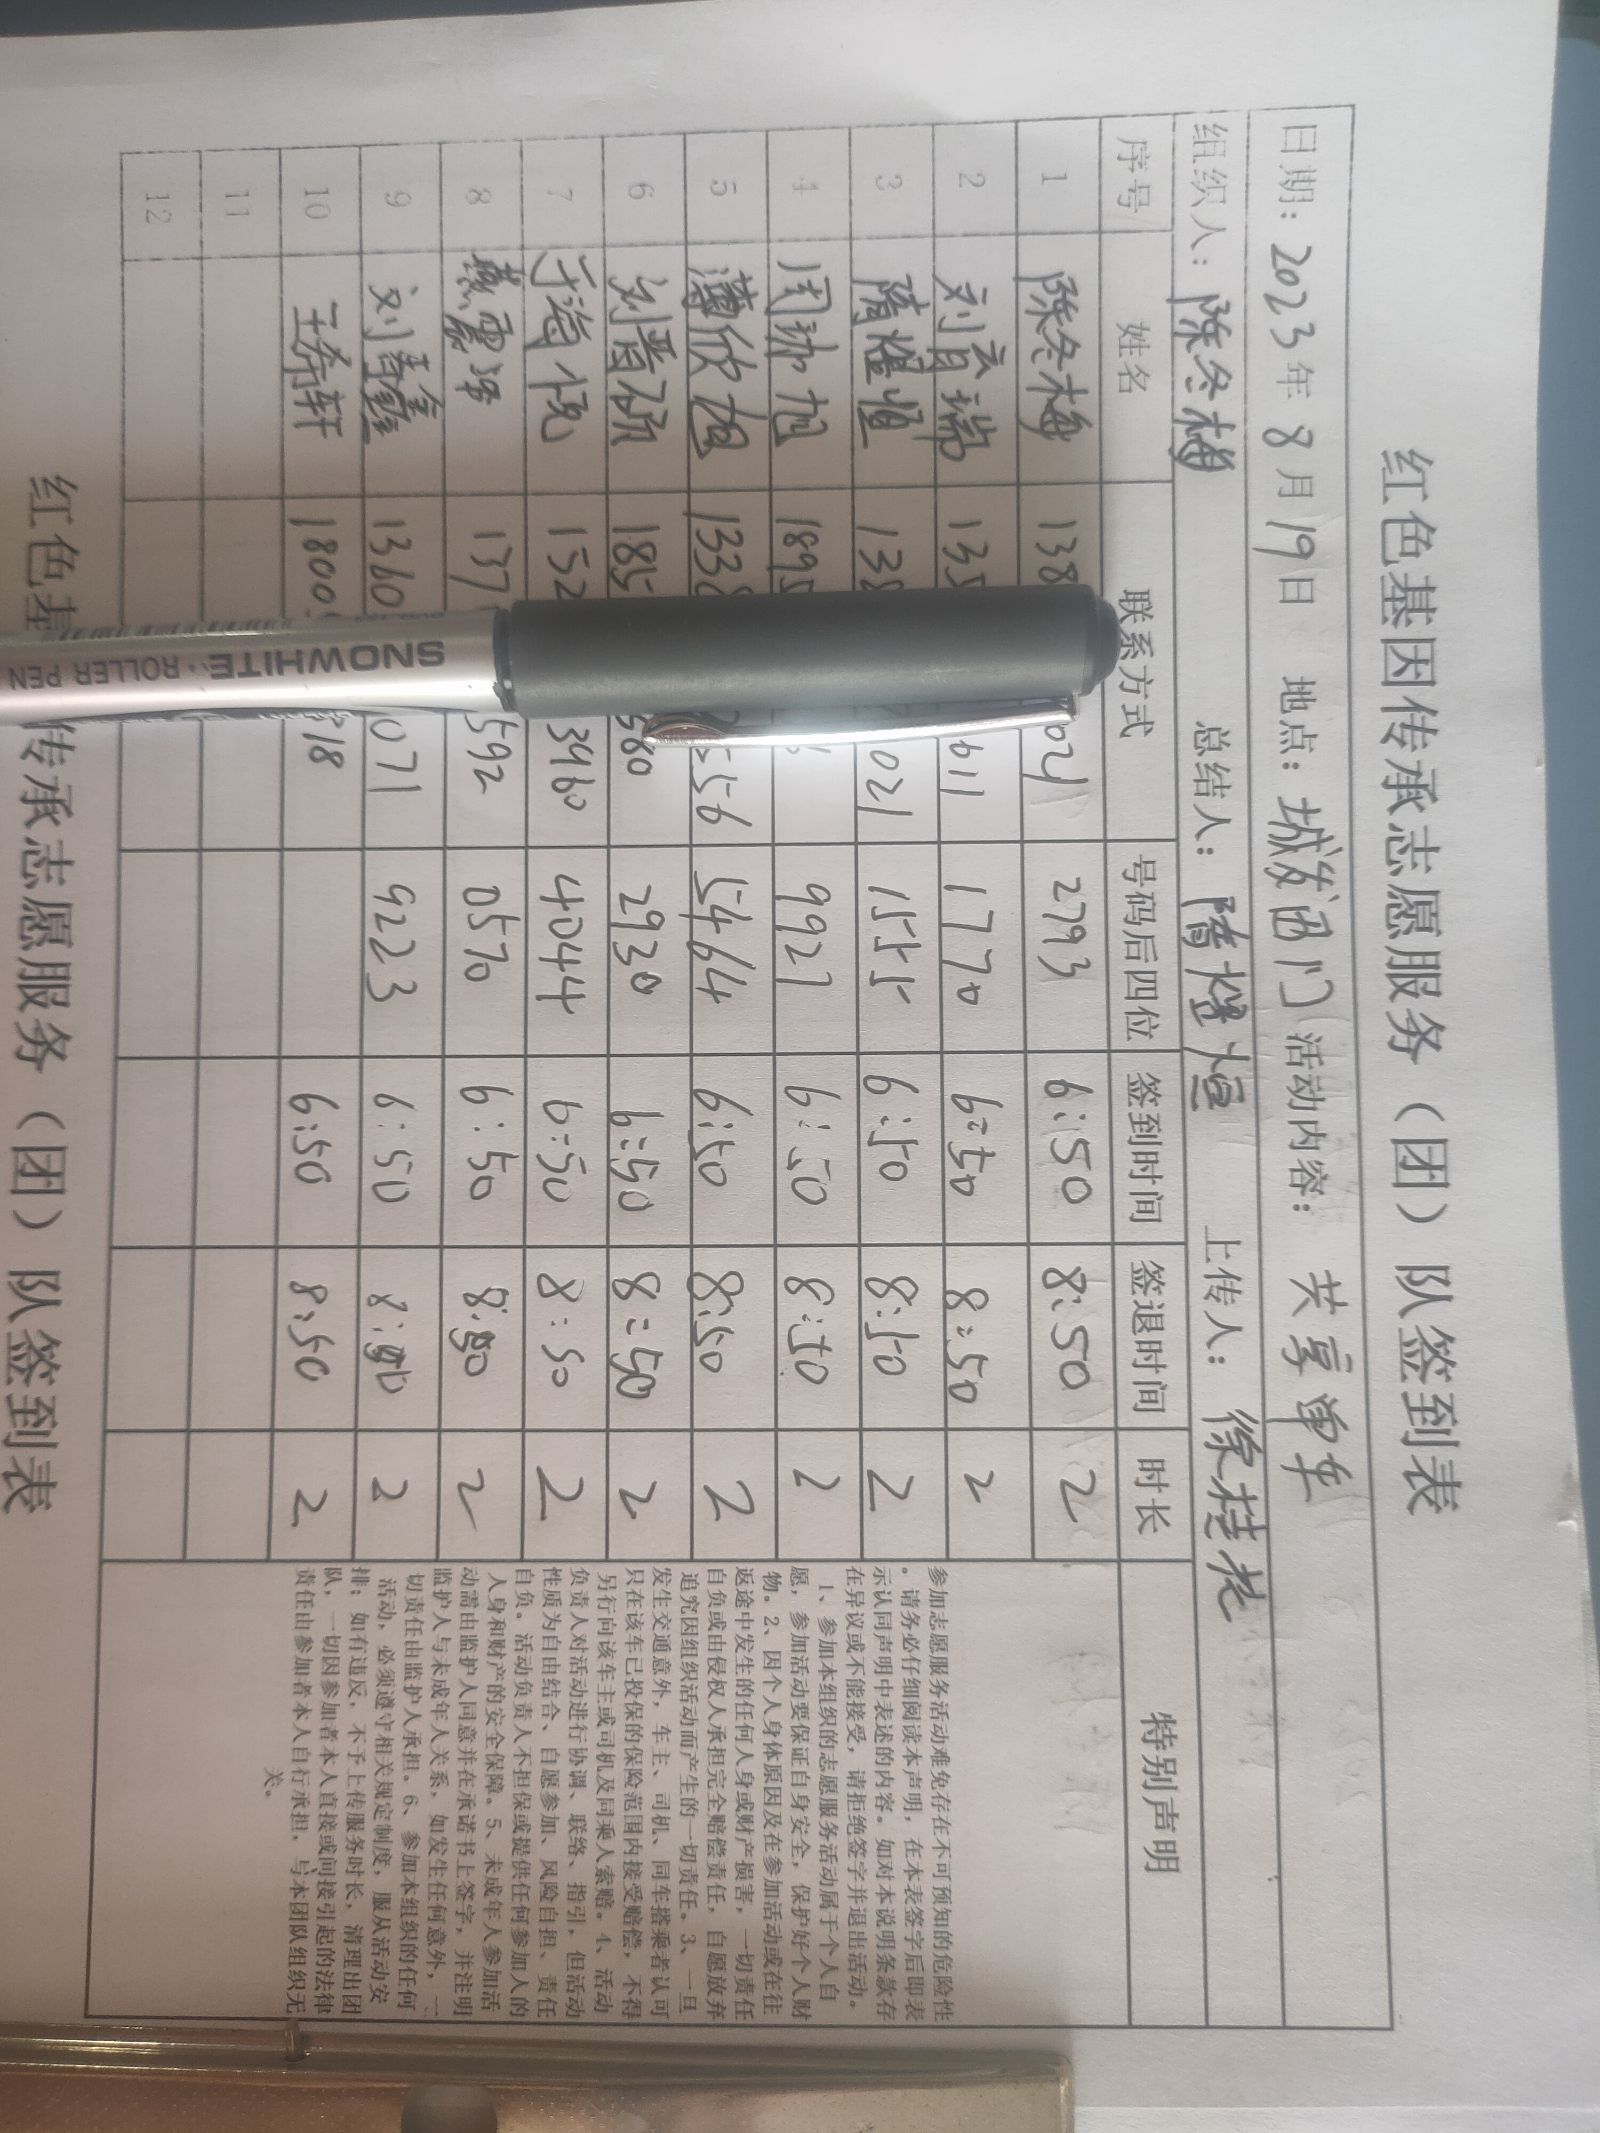 红色基因传承志愿服务（团）队签到表
日期：2023年8月19日 地点： 活动内容：共享单车
组织人：陈冬梅 总结人：隋煜恒 上传人：徐桂花
序号 姓名 联系方式 号码后四位 签到时间 签退时间 时长 特别声明
1 陈冬梅 138 2793 6:50 8:50 2
2 刘育瑞 135 611 1770 6:50 8:50 2
3 隋煜恒 138 021 1555 6:50 8:50 2
4 周珈旭 1895 9927 6:50 8:50 2
5 薄欣旭 1338 556 5464 6:50 8:50 2
6 刘晋硕 185 580 2930 6:50 8:50 2
7 于海悦 152 3960 4044 6:50 8:50 2
8 137 592 0570 6:50 8:50 2
9 刘 鑫 1360 071 9223 6:50 8: 2
10 王希轩 1800 318 6:50 8:50 2
11
12
参加志愿服务活动难免存在不可预知的危险性
。请务必仔细阅读本声明，在本表签字后即表
示认同声明中表述的内容。如对本说明条款存
在异议或不能接受，请拒绝签字并退出活动。
1、参加本组织的志愿服务活动属于个人自
愿，参加活动要保证自身安全，保护好个人财
物。2、因个人身体原因及在参加活动或在往
返途中发生的任何人身或财产损害，一切责任
自负或由侵权人承担完全赔偿责任，自愿放弃
追究因组织活动而产生的一切责任。3、一旦
发生交通意外，车主、司机、同车搭乘者认可
只在该车已投保的保险范围内接受赔偿，不得
另行向该车主或司机及同乘人索赔。4、活动
负责人对活动进行协调、联络、指引，但活动
性质为自由结合、自愿参加、风险自担、责任
自负。活动负责人不担保或提供任何参加人的
人身和财产的安全保障。5、未成年人参加活
动需由监护人同意并在承诺书上签字，并注明
监护人与未成年人关系，如发生任何意外，一
切责任由监护人承担。6、参加本组织的任何
活动，必须遵守相关规定制度，服从活动安
排；如有违反，不予上传服务时长，清理出团
队，一切因参加者本人直接或间接引起的法律
责任由参加者本人自行承担，与本团队组织无
关。
SNOWHITE ROLLER PEN
红色基 传承志愿服务（团）队签到表